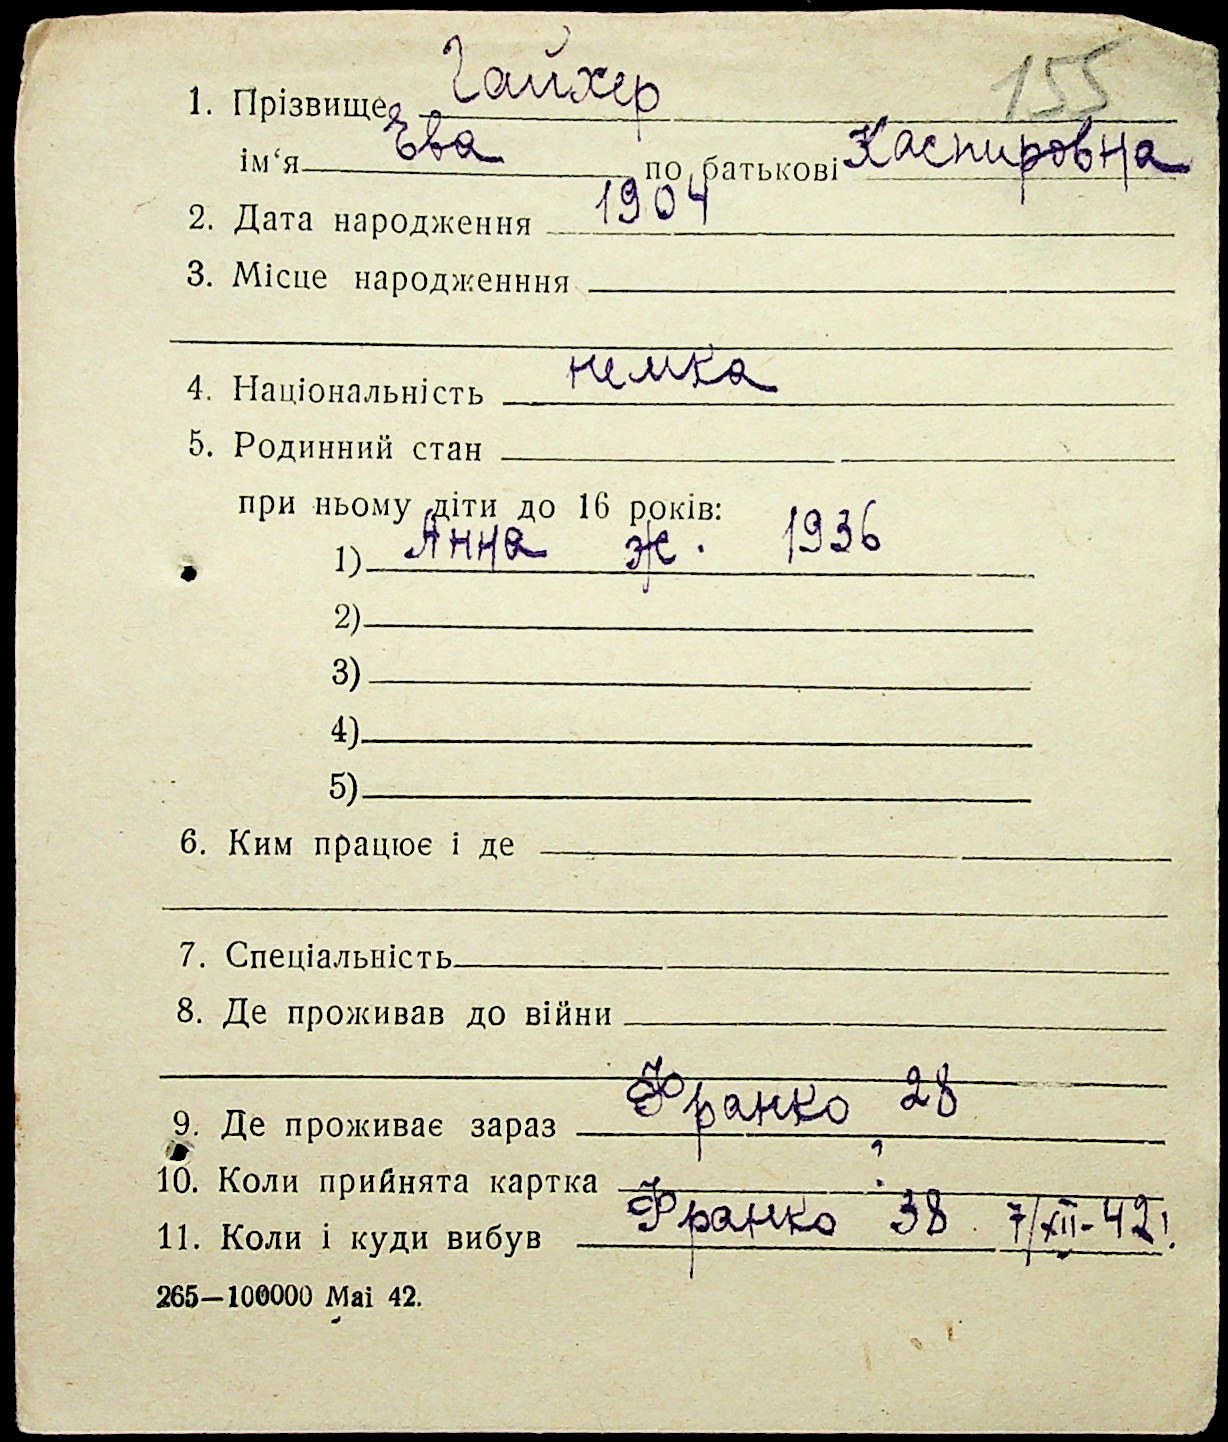 155
1. Прізвище Гайхер
ім‘я Ева по батькові Каспировна
2. Дата народження 1904
3. Місце народженння
4. Національність немка
5. Родинний стан
при ньому діти до 16 років:
1) Анна ж. 1936
2)
3)
4)
5)
6. Ким працює і де
7. Спеціальність
8. Де проживав до війни
9. Де проживає зараз Франко 28
10. Коли прийнята картка ?
11. Коли і куди вибув Франко 38 7/XII-42!
265—100000 Mai 42.